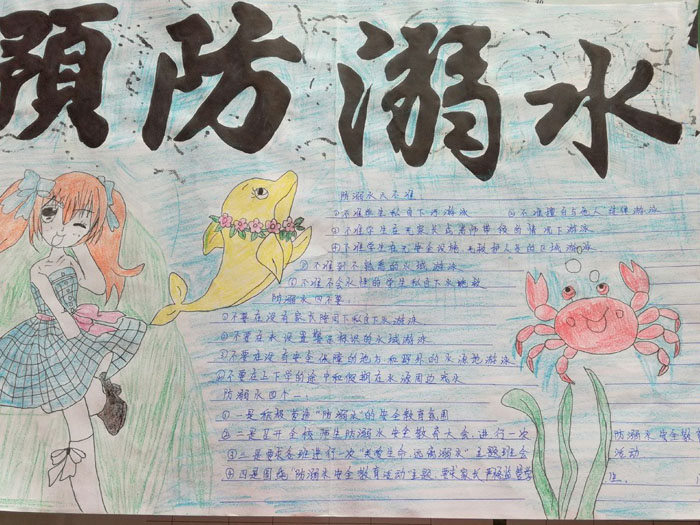 預防溺水
防溺水六不准
①不准学生私自下河游泳 ②不准擅自与他人结伴游泳
③不准学生在无家长或老师带领的情况下游泳
④不准学生在无安全设施、无救护人员的区域游泳
⑤不准到不熟悉的水域游泳
⑥不准不会水性的学生私自下水施救
防溺水四不要:
①不要在没有家长陪同下私自下水游泳
②不要在未设置警示标识的水域游泳
③不要在没有安全保障的池与和野外的天然地游泳
④不要在上下学的途中和假期在水源周边戏水
防溺水四个一:
①一是积极营造"防溺水"的安全教育氛围
②二是召开全校师生防溺水安全教育大会,进行一次
防溺水安全教育
③三是要求各班进行一次"关爱生命,远离溺水"主题班会
活动
④四是围绕"防溺水安全教育活动"主题,要求家长